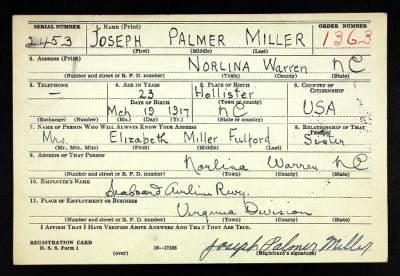 SERIAL NUMBER 1. NAME (Print) ORDER NUMBER
2453 JOSEPH PALMER MILLER 1363
(First) (Middle) (Last)
2. ADDRESS (Print)
NORLINA Warren NC
(Number and street or R. F. D. number) (Town) (County) (State)
3. TELEPHONE 4. AGE IN YEARS 5. PLACE OF BIRTH 6. COUNTRY OF CITIZENSHIP
— 23 Hollister
DATE OF BIRTH (Town or county)
Mch 19 1917 NC USA
(Exchange) (Number) (Mo.) (Day) (Yr.) (State or country)
7. NAME OF PERSON WHO WILL ALWAYS KNOW YOUR ADDRESS 8. RELATIONSHIP OF THAT PERSON
Mrs. Elizabeth Miller Fulford Sister
(Mr., Mrs., Miss) (First) (Middle) (Last)
9. ADDRESS OF THAT PERSON
Norlina Warren NC
(Number and street or R. F. D. number) (Town) (County) (State)
10. EMPLOYER'S NAME
Seaboard Airline Rwy.
11. PLACE OF EMPLOYMENT OR BUSINESS
Virginia Division
(Number and street or R. F. D. number) (Town) (County) (State)
I AFFIRM THAT I HAVE VERIFIED ABOVE ANSWERS AND THAT THEY ARE TRUE.
REGISTRATION CARD Joseph Palmer Miller
D. S. S. Form 1 (over) 16—17105 (Registrant's signature)